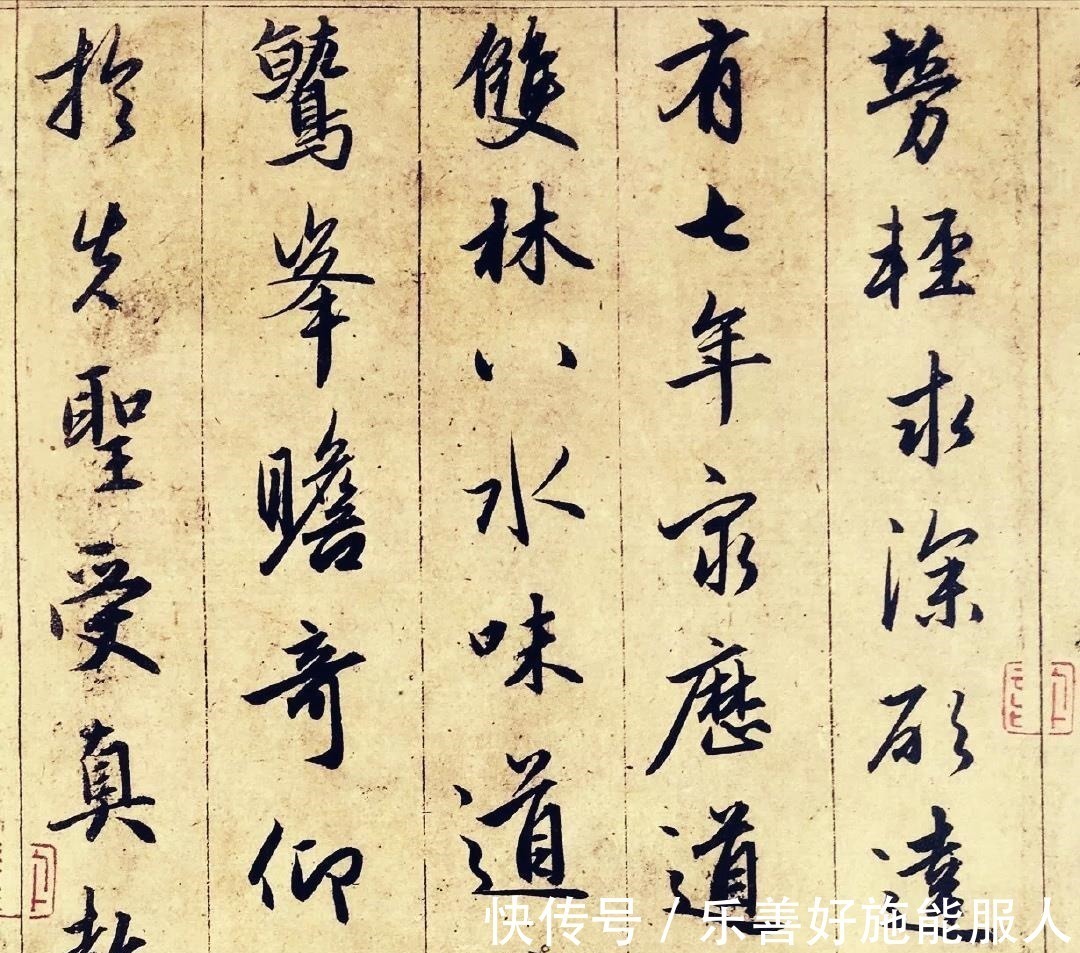 勞輕求深願達
有七年窮歷道
雙林八水味道
鷲峯瞻奇仰
於先聖受真
快传号 / 乐善好施能服人